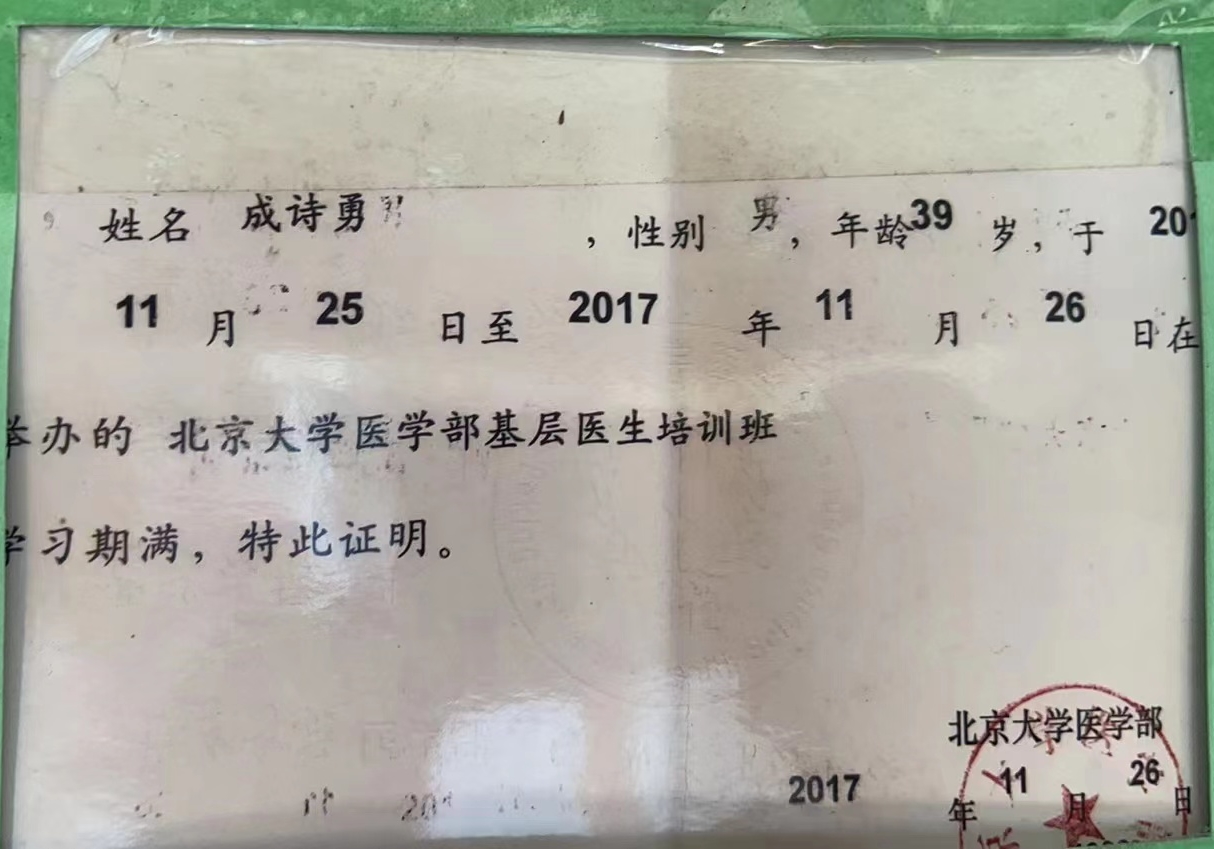 姓名 成诗勇 ，性别 男，年龄39 岁，于 201
11 月 25 日至 2017 年 11 月 26 日在
举办的 北京大学医学部基层医生培训班
学习期满，特此证明。
北京大学医学部
2017 年 11 月 26 日